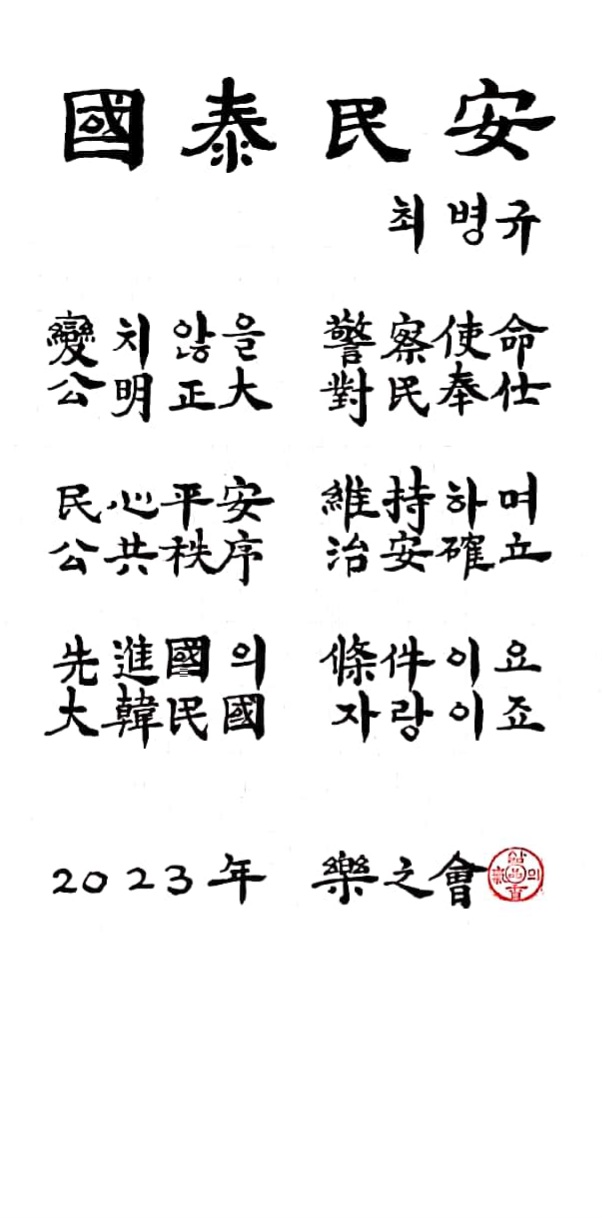 國泰民安
최병규
變치않을 警察使命
公明正大 對民奉仕
民心平安 維持하며
公共秩序 治安確立
先進國의 條件이요
大韓民國 자랑이죠
2023年 樂之會